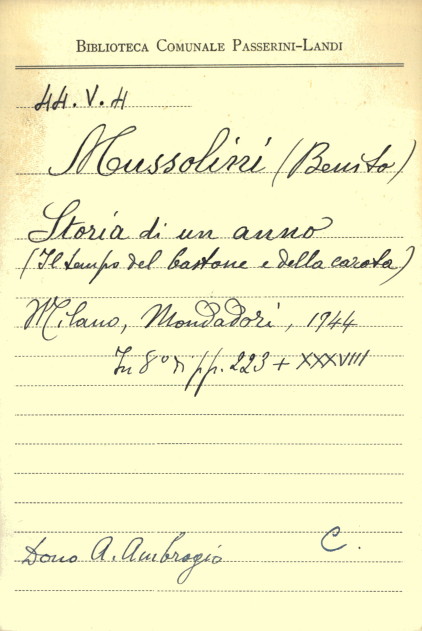 BIBLIOTECA COMUNALE PASSERINI-LANDI
44.V.4
Mussolini (Benito)
Storia di un anno
(Il tempo del bastone e della carota)
Milano, Mondadori, 1944
In 8° di pp. 223 + XXXVIII
Dono A. Ambrogio C.